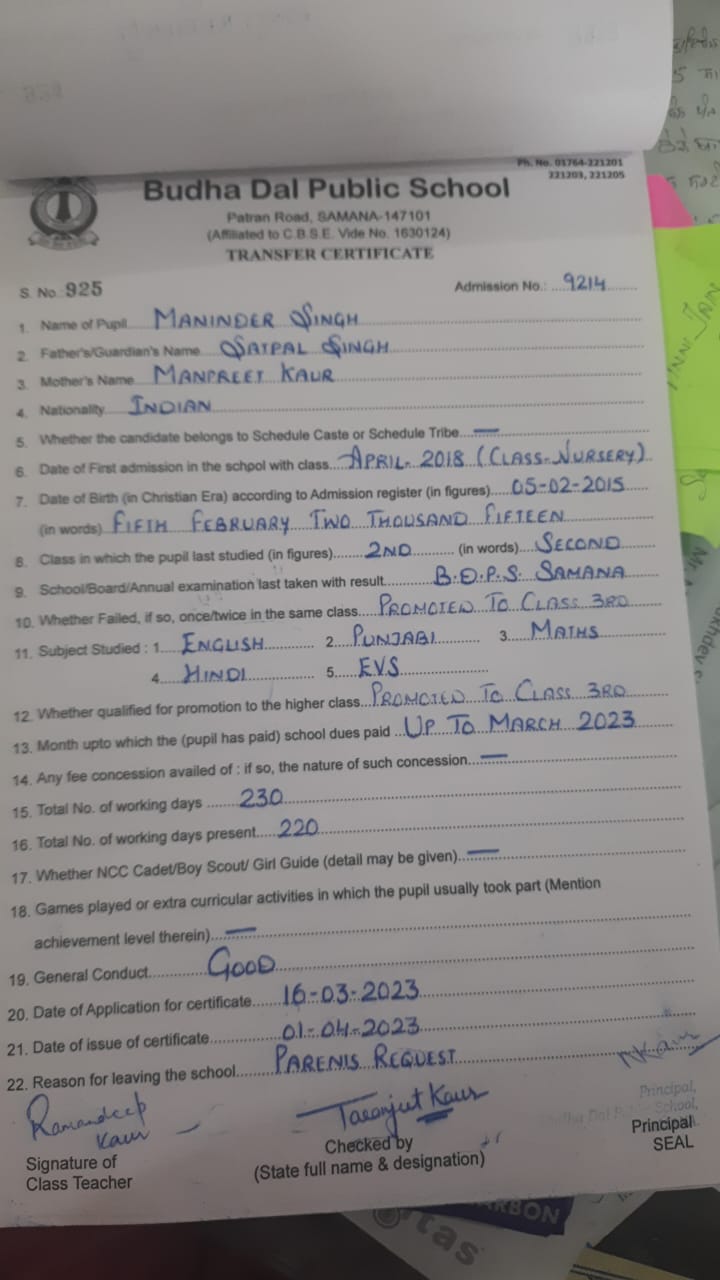 Ph. No. 01764-221201
221203, 221205
Budha Dal Public School
Patran Road, SAMANA-147101
(Affiliated to C.B.S.E. Vide No. 1630124)
TRANSFER CERTIFICATE
S. No. 925 Admission No.: 9214
1. Name of Pupil MANINDER SINGH
2. Father's/Guardian's Name SATPAL SINGH
3. Mother's Name MANPREET KAUR
4. Nationality INDIAN
5. Whether the candidate belongs to Schedule Caste or Schedule Tribe —
6. Date of First admission in the school with class APRIL-2018 (CLASS-NURSERY)
7. Date of Birth (in Christian Era) according to Admission register (in figures) 05-02-2015
(in words) FIFTH FEBRUARY TWO THOUSAND FIFTEEN
8. Class in which the pupil last studied (in figures) 2ND (in words) SECOND
9. School/Board/Annual examination last taken with result B.D.P.S. SAMANA
10. Whether Failed, if so, once/twice in the same class PROMOTED TO CLASS 3RD
11. Subject Studied : 1. ENGLISH 2. PUNJABI 3. MATHS
4. HINDI 5. EVS
12. Whether qualified for promotion to the higher class PROMOTED TO CLASS 3RD
13. Month upto which the (pupil has paid) school dues paid UP TO MARCH 2023
14. Any fee concession availed of : if so, the nature of such concession —
15. Total No. of working days 230
16. Total No. of working days present 220
17. Whether NCC Cadet/Boy Scout/ Girl Guide (detail may be given) —
18. Games played or extra curricular activities in which the pupil usually took part (Mention
achievement level therein) —
19. General Conduct GOOD
20. Date of Application for certificate 16-03-2023
21. Date of issue of certificate 01-04-2023
22. Reason for leaving the school PARENTS REQUEST
Ramandeep
Kaur
Taranjeet Kaur
Principal,
Budha Dal Public School,
Signature of
Class Teacher
Checked by
(State full name & designation)
Principal
SEAL